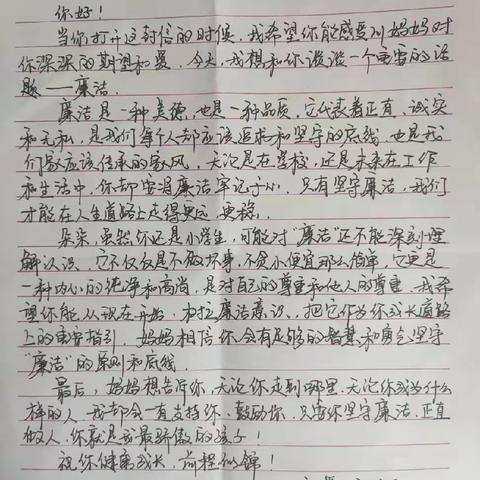 你好！
当你打开这封信的时候，我希望你能感受到妈妈对
你深深的期望和爱。今天，我想和你谈谈一个重要的话
题——廉洁。
廉洁是一种美德，也是一种品质，它代表着正直、诚实
和无私，是我们每个人都应该追求和坚守的底线，也是我
们家应该传承的家风，无论是在学校，还是未来在工作
和生活中，你都要将廉洁牢记于心，只有坚守廉洁，我们
才能在人生道路上走得更远，更稳。
朵朵，虽然你还是小学生，可能对“廉洁”还不能深刻理
解认识，它不仅仅是不做坏事，不贪小便宜那么简单，它更是
一种内心的纯净和高尚，是对自己的尊重和他人的尊重。我希
望你能从现在开始，树立廉洁意识，把它作为你成长道路
上的重要指引，妈妈相信你会有足够的智慧和勇气坚守
“廉洁”的原则和底线。
最后，妈妈想告诉你，无论你走到哪里，无论你成为什么
样的人，我都会一直支持你、鼓励你，只要你坚守廉洁，正直
做人，你就是我最骄傲的孩子！
祝你健康成长，前程似锦！